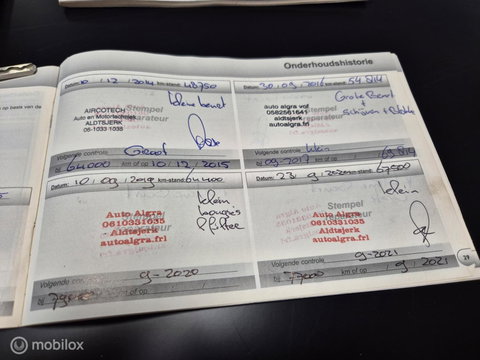 Onderhoudshistorie
op basis van de
Datum: 10 / 12 / 2014 km-stand: 48750
AIRCOTECH
Auto en Motortechniek
ALDTSJERK
06-1033 1035
Stempel
reparateur
kleine beurt
Volgende controle Groot
bij 64000 km of op 10 / 12 / 2015
Datum: 30 / 09 / 2016 km-stand: 54814
auto algra vof
0582561641
aldtsjerk
autoalgra.frl
Stempel
reparateur
Grote Beurt
+
Volgende controle klein
bij 09-2017 km of op 69814
10 / 09 / 2019 km-stand: 61400
Auto Algra
0610331035
Aldtsjerk
autoalgra.frl
Stempel
reparateur
klein
bougies
filter
Volgende controle 9-2020
bij km of op
23 / 9 - 2020 km-stand: 67500
Auto Algra
0610331035
Aldtsjerk
autoalgra.frl
Stempel
reparateur
klein
Volgende controle 9-2021
bij 77000 km of op / 9 / 2021
29
mobilox